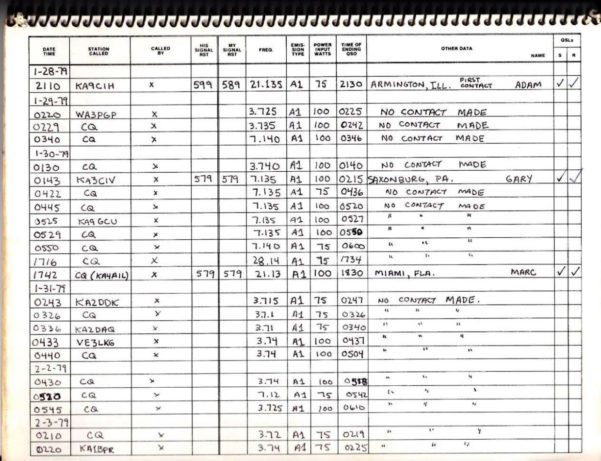 QSLs
DATE TIME STATION CALLED CALLED BY HIS SIGNAL RST MY SIGNAL RST FREQ. EMIS-SION TYPE POWER INPUT WATTS TIME OF ENDING QSO OTHER DATA NAME S R
1-28-79
2110 KA9CIH X 599 589 21.135 A1 75 2130 ARMINGTON, ILL. FIRST CONTACT ADAM ✓ ✓
1-29-79
0220 WA3PGP X 3.725 A1 100 0225 NO CONTACT MADE
0229 CQ X 3.735 A1 100 0242 NO CONTACT MADE
0340 CQ X 7.140 A1 100 0346 NO CONTACT MADE
1-30-79
0130 CQ X 3.740 A1 100 0140 NO CONTACT MADE
0143 KA3CIV X 579 579 7.135 A1 100 0215 SAXONBURG, PA. GARY ✓ ✓
0422 CQ X 7.135 A1 75 0436 NO CONTACT MADE
0445 CQ X 7.135 A1 100 0520 NO CONTACT MADE
0525 KA9GCU X 7.135 A1 100 0527 " " "
0529 CQ X 7.135 A1 100 0550 " " "
0550 CQ X 7.140 A1 75 0600 " " "
1716 CQ X 28.14 A1 75 1734 " " "
1742 CQ (KA4AIL) X 579 579 21.13 A1 100 1830 MIAMI, FLA. MARC ✓ ✓
1-31-79
0243 KA2DDK X 3.715 A1 75 0247 NO CONTACT MADE.
0326 CQ X 3.7.1 A1 75 0326 " " "
0336 KA2DAQ X 3.71 A1 75 0340 " " "
0433 VE3LKG X 3.74 A1 100 0437 " " "
0440 CQ X 3.74 A1 100 0504 " " "
2-2-79
0430 CQ X 3.74 A1 100 0518 " " "
0520 CQ X 7.12 A1 75 0542 " " "
0545 CQ X 3.725 A1 100 0610 " " "
2-3-79
0210 CQ X 3.72 A1 75 0219 " " "
0220 KA1BPR X 3.74 A1 75 0225 " " "